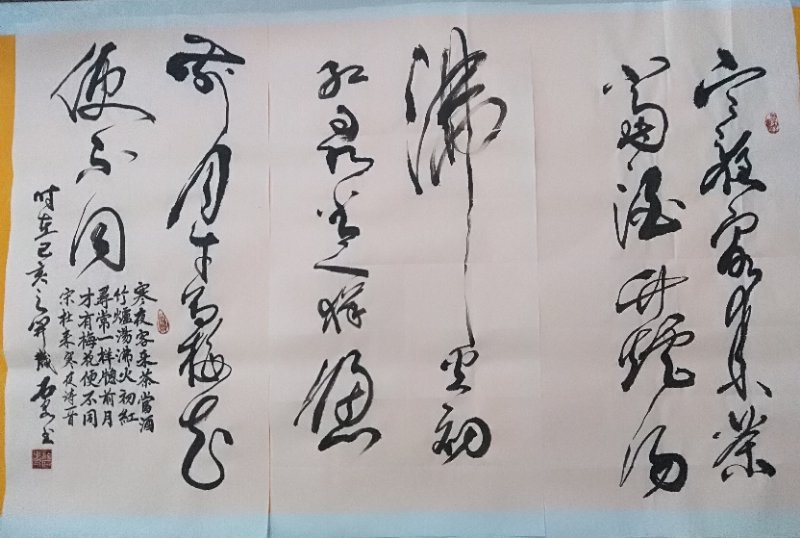 寒夜客来茶
当酒竹炉汤
沸火初
红寻常一样窗
前月才有梅花
便不同
寒夜客来茶當酒
竹爐湯沸火初紅
尋常一样牕前月
才有梅花便不同
宋杜耒寒夜诗一首
时在己亥之